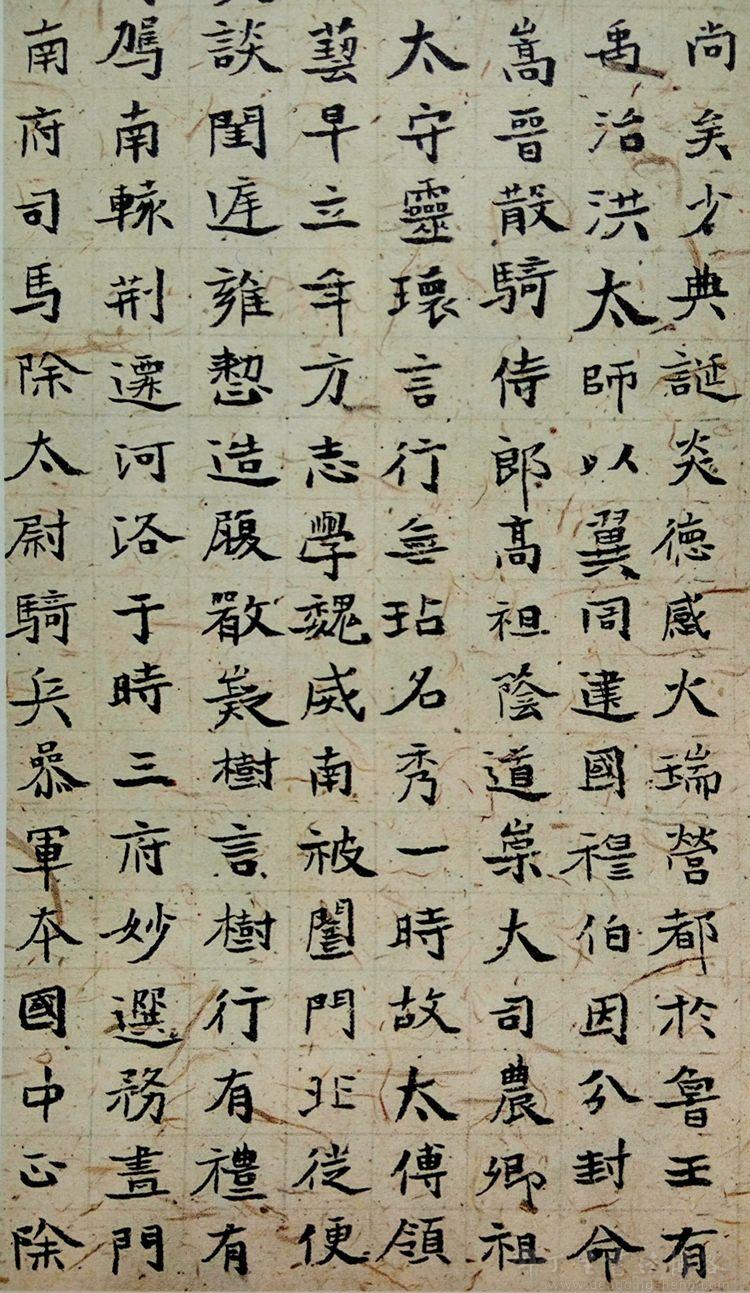 尚矣少典誕炎德感火瑞營都於魯王有
禹治洪太師以翼同建國穆伯因分封命
嵩晉散騎侍郎高祖蔭道崇大司農卿祖
太守靈瓌言行無玷名秀一時故太傅領
藝早立年方志學魏威南被闔門北從便
談閨遲雍愨造履嚴義樹言樹行有禮有
駕南轅荆遷河洛于時三府妙選務盡門
南府司馬除太尉騎兵叅軍本國中正除
www.dengdingsheng.com